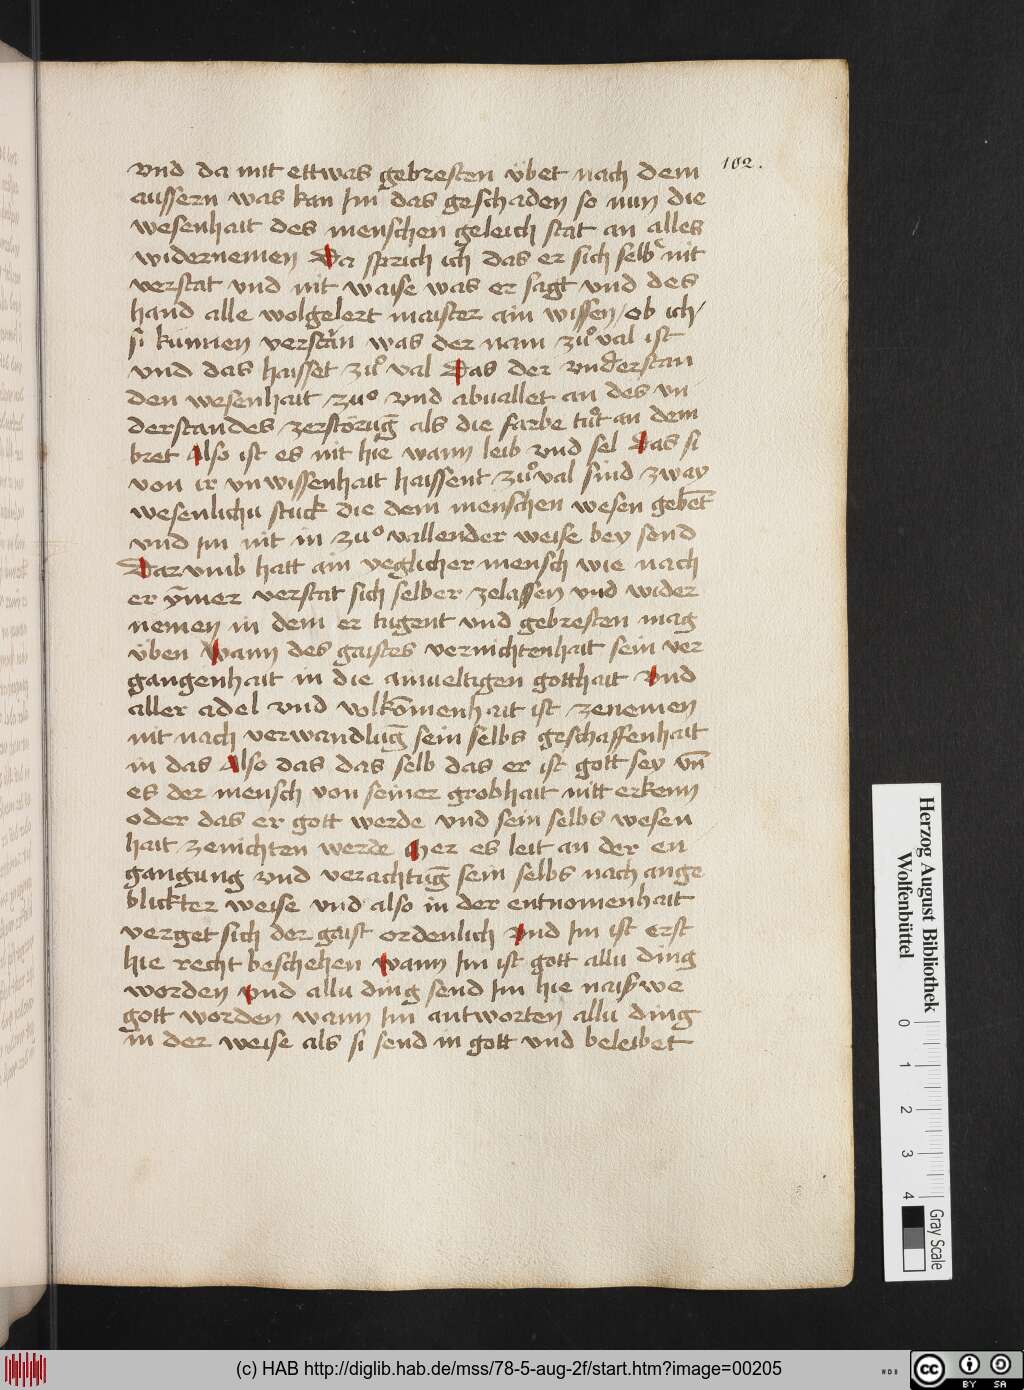 102.
vnd da mit ettwas gebresten vͤbet nach dem
aussern was kan Im das geschaden so nun die
wesenhait des menschen geleich stat an alles
widernemen Da sprich ich das er sich selbs nit
verstat vnd nit waise was er sagt vnd des
hand alle wolgelert maister ain wissen / ob ich /
si kunnen verstan was der nam zuͦval ist
vnd das haisset zuͦ val Das der vnderstan
den wesenhait zuͦ vnd abuallet an des vn
derstandes zerstorūg als die farbe tuͦt an dem
bret Also ist es nit hie wann leib vnd sel Das si
von ir vnwissenhait haissent zuͦval sind zway
wesenlichu stuck die dem menschen wesen gebēt
vnd Im nit in zuͦ vallender weise bey send
Darvmb hatt ain yeglicher mensch wie nach
er ȳmer verstat sich selber zelassen vnd wider
nemen in dem er tugent vnd gebresten mag
vͤben Wann des gaistes vernichtenhait sein ver
gangenhait in die ainueltigen gotthait Vnd
aller adel vnd volkōmenhait ist zenemen
nit nach verwandlūg sein selbs geschaffenhait
in das Also das das selb das er ist gott sey vn̄
es der mensch von seiner grobhait nitt erkenn
oder das er gott werde vnd sein selbs wesen
hait zenichten werde Mer es leit an der en
gangung vnd verachtūg sein selbs nach ange
blickter weise vnd also in der entnomenhait
verget sich der gaist ordenlich Vnd Im ist erst
hie recht beschehen Wann Im ist gott allu ding
worden Vnd allu ding send Im hie naiswe
gott worden wann Im antworten allu ding
in der weise als si send in gott vnd beleibet
Herzog August Bibliothek
Wolfenbüttel
0 1 2 3 4
Gray Scale
(c) HAB http://diglib.hab.de/mss/78-5-aug-2f/start.htm?image=00205
WDB
cc BY SA